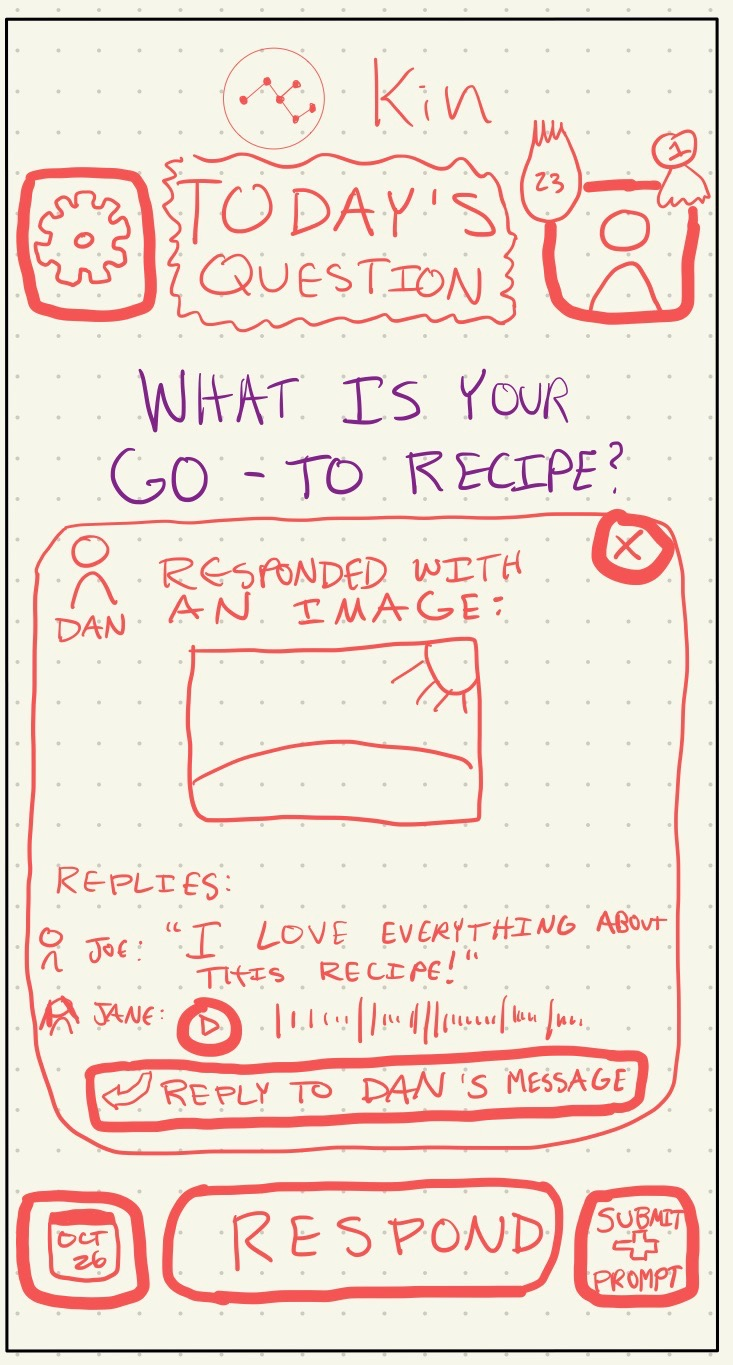 Kin
TODAY'S
QUESTION
23
1
WHAT IS YOUR
GO-TO RECIPE?
X
DAN
RESPONDED WITH
AN IMAGE:
REPLIES:
JOE: "I LOVE EVERYTHING ABOUT
THIS RECIPE!"
JANE:
REPLY TO DAN'S MESSAGE
OCT
26
RESPOND
SUBMIT
PROMPT